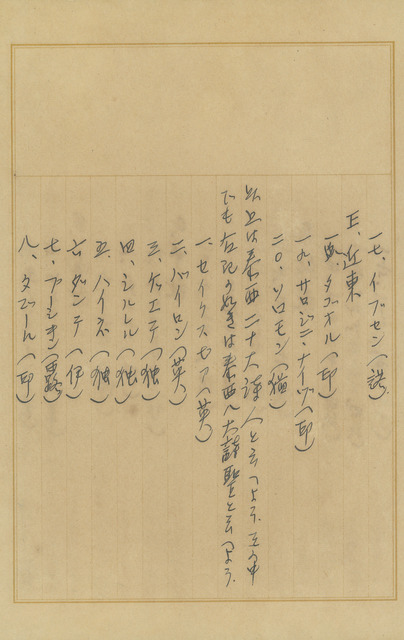 一七、イブセン(諾)
五、近東
一八、タゴオル(印)
一九、サロジニ・ナイヅ(印)
二〇、ソロモン(猶)
以上は泰西二十大詩人と云つよう。この中
でも右記の如きは泰西八大詩聖と云つよう。
一、セイクスピア(英)
二、バイロン(英)
三、ゲエテ(独)
四、シルレル(独)
五、ハイネ(独)
六、ダンテ(伊)
七、プーシキン(露)
八、タゴール(印)